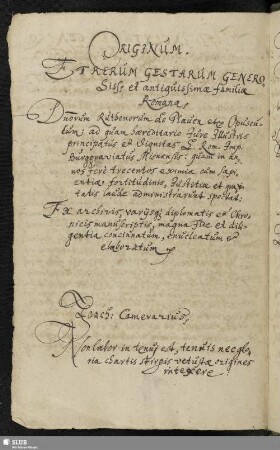 ORIGINUM.
ET RERUM GESTARUM GENERO
siss: et antiquissimæ familiæ
Romanæ
Ducum Ruthenorum de Plauen etc Opuscu-
lum: ad quam hæreditario Jure Illustris
principatus et dignitas S. Rom. Imp.
Burggraviatus Misnensis: quam in an-
nos ferè trecentos eximia cum sapi-
entiæ, fortitudinis, Justitiæ et
tatis laude administrarunt spectat:
Ex archivis, varijsq; diplomatis et Chro-
nicis manuscriptis, magna fide et dili-
gentia concinnatum, enucleatum et
elaboratum
Joach: Camerarius,
Non labor in tenui est, tenuis nec glo-
ria chartis stirpis vetustæ origines
intexere
SLUB
Wir führen Wissen.